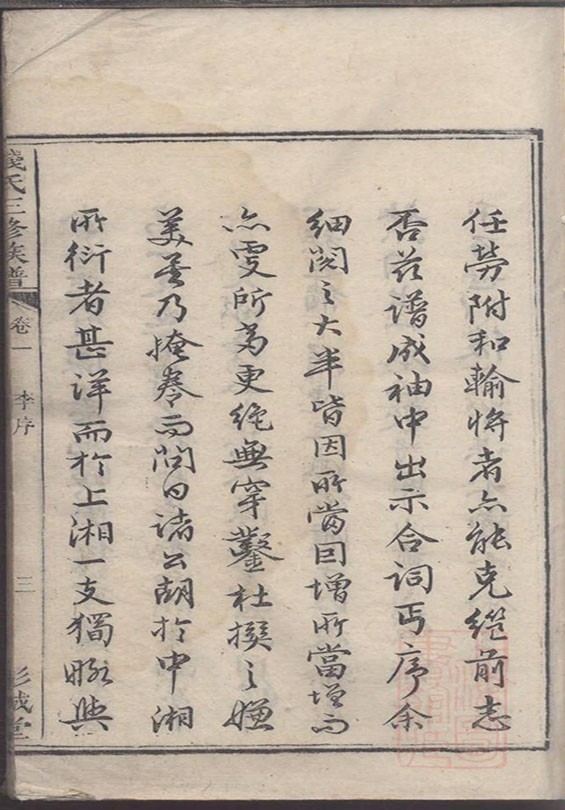 任勞附和輸將者亦能克繩前志
否茲譜成袖中出示合詞丐序余
細閱之大半皆因所當因增所當增而
亦更所為更絕無穿鑿杜撰之嫌
美善乃掩卷而問曰諸公胡於中湘
所衍者甚詳而於上湘一支獨略與
錢氏三修族譜
卷一
李序
三
彭城堂